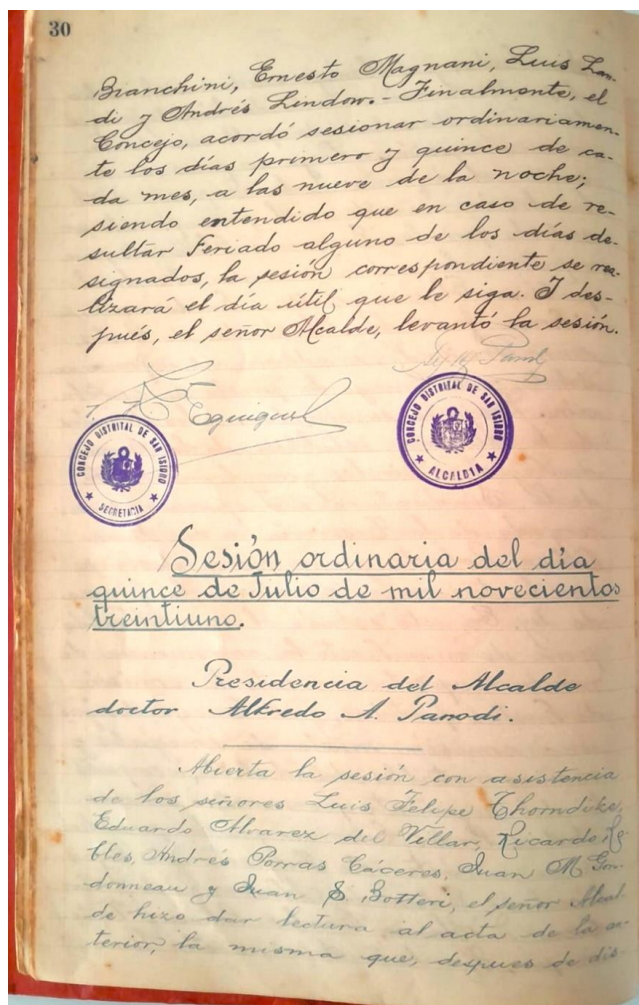 30
Bianchini, Ernesto Magnani, Luis Lan-
di y Andrés Lindow.- Finalmente, el
Concejo, acordó sesionar ordinariamen-
te los días primero y quince de ca-
da mes, a las nueve de la noche;
siendo entendido que en caso de re-
sultar Feriado alguno de los días de-
signados, la sesión correspondiente se rea-
lizará el día útil que le siga. I des-
pués, el señor Alcalde, levantó la sesión.
CONCEJO DISTRITAL DE SAN ISIDRO
ALCALDIA
CONCEJO DISTRITAL DE SAN ISIDRO
SECRETARIA
Sesión ordinaria del día
quince de Julio de mil novecientos
treintiuno.
Presidencia del Alcalde
doctor Alfredo A. Parodi.
Abierta la sesión con asistencia
de los señores Luis Felipe Thorndike,
Eduardo Alvarez del Villar, Ricardo Ro-
bles, Andrés Porras Cáceres, Juan M.
donneau y Juan S. Botteri, el señor Alcal-
de hizo dar lectura al acta de la an-
terior, la misma que, despues de dis-